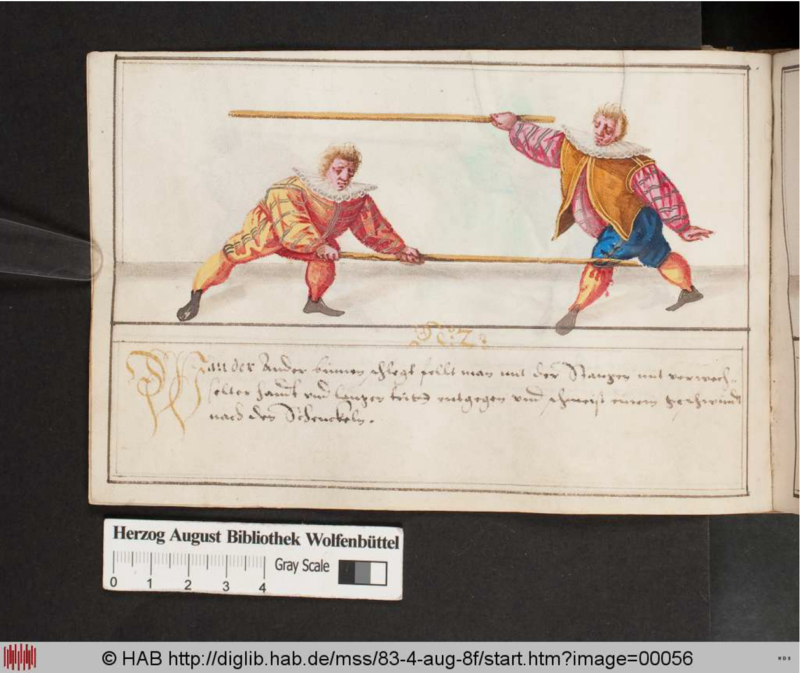 Wan der Ander binnen schlegt felt man mit der Stangen mit verwech-
selter handt und langen trit entgegen und schmeist einem
nach den Schenckeln.
Herzog August Bibliothek Wolfenbüttel
Gray Scale
0 1 2 3 4
© HAB http://diglib.hab.de/mss/83-4-aug-8f/start.htm?image=00056